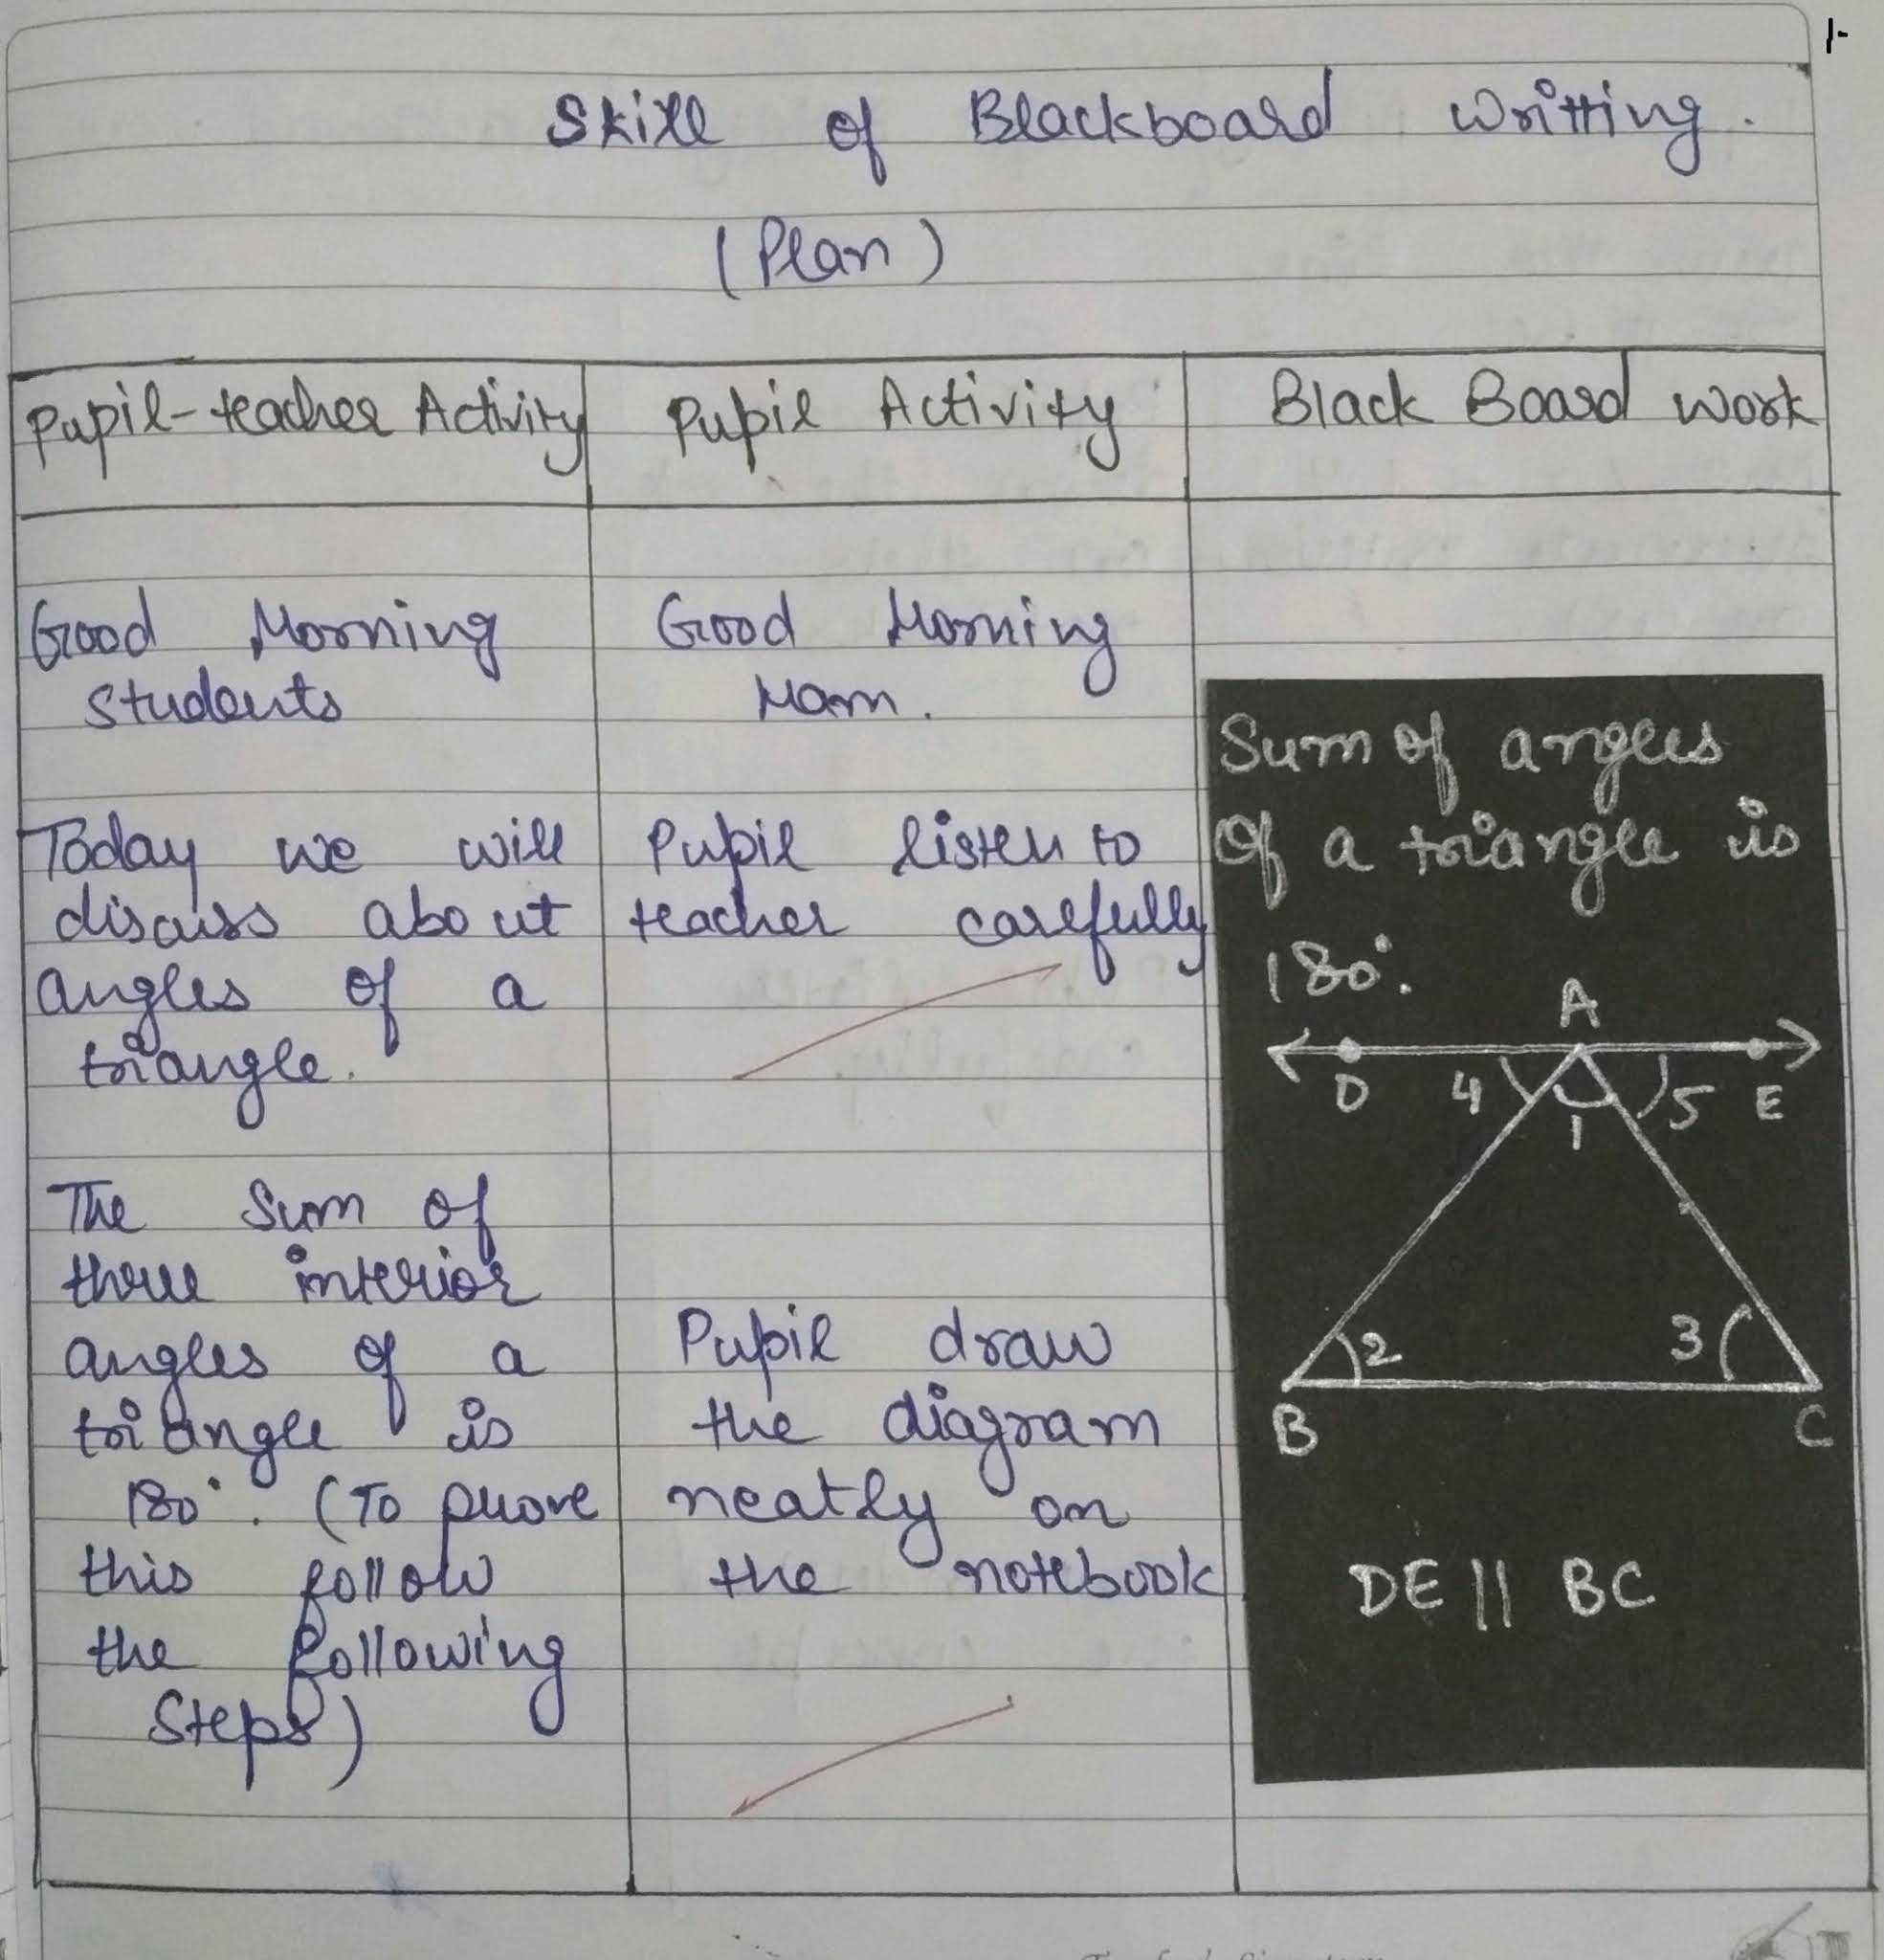 1-
Skill of Blackboard Writting.
(Plan)
Pupil-teacher Activity
Pupil Activity
Black Board Work
Good Morning
Students
Good Morning
Mam.
Today we will
discuss about
angles of a
triangle.
Pupil listen to
teacher carefully
The Sum of
three interior
angles of a
triangle is
180°. (To prove
this follow
the following
Steps)
Pupil draw
the diagram
neatly on
the notebook
Sum of angles
Of a triangle is
180°.
A
D 4 1 5 E
2 3
B C
DE || BC